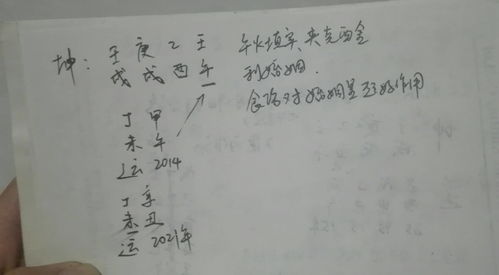 坤：壬庚乙壬
戌戌酉午
午火填实夹克酉金
利婚姻.
食伤对婚姻星起好作用
丁甲
未午
运 2014
丁辛
未丑
运 2021年